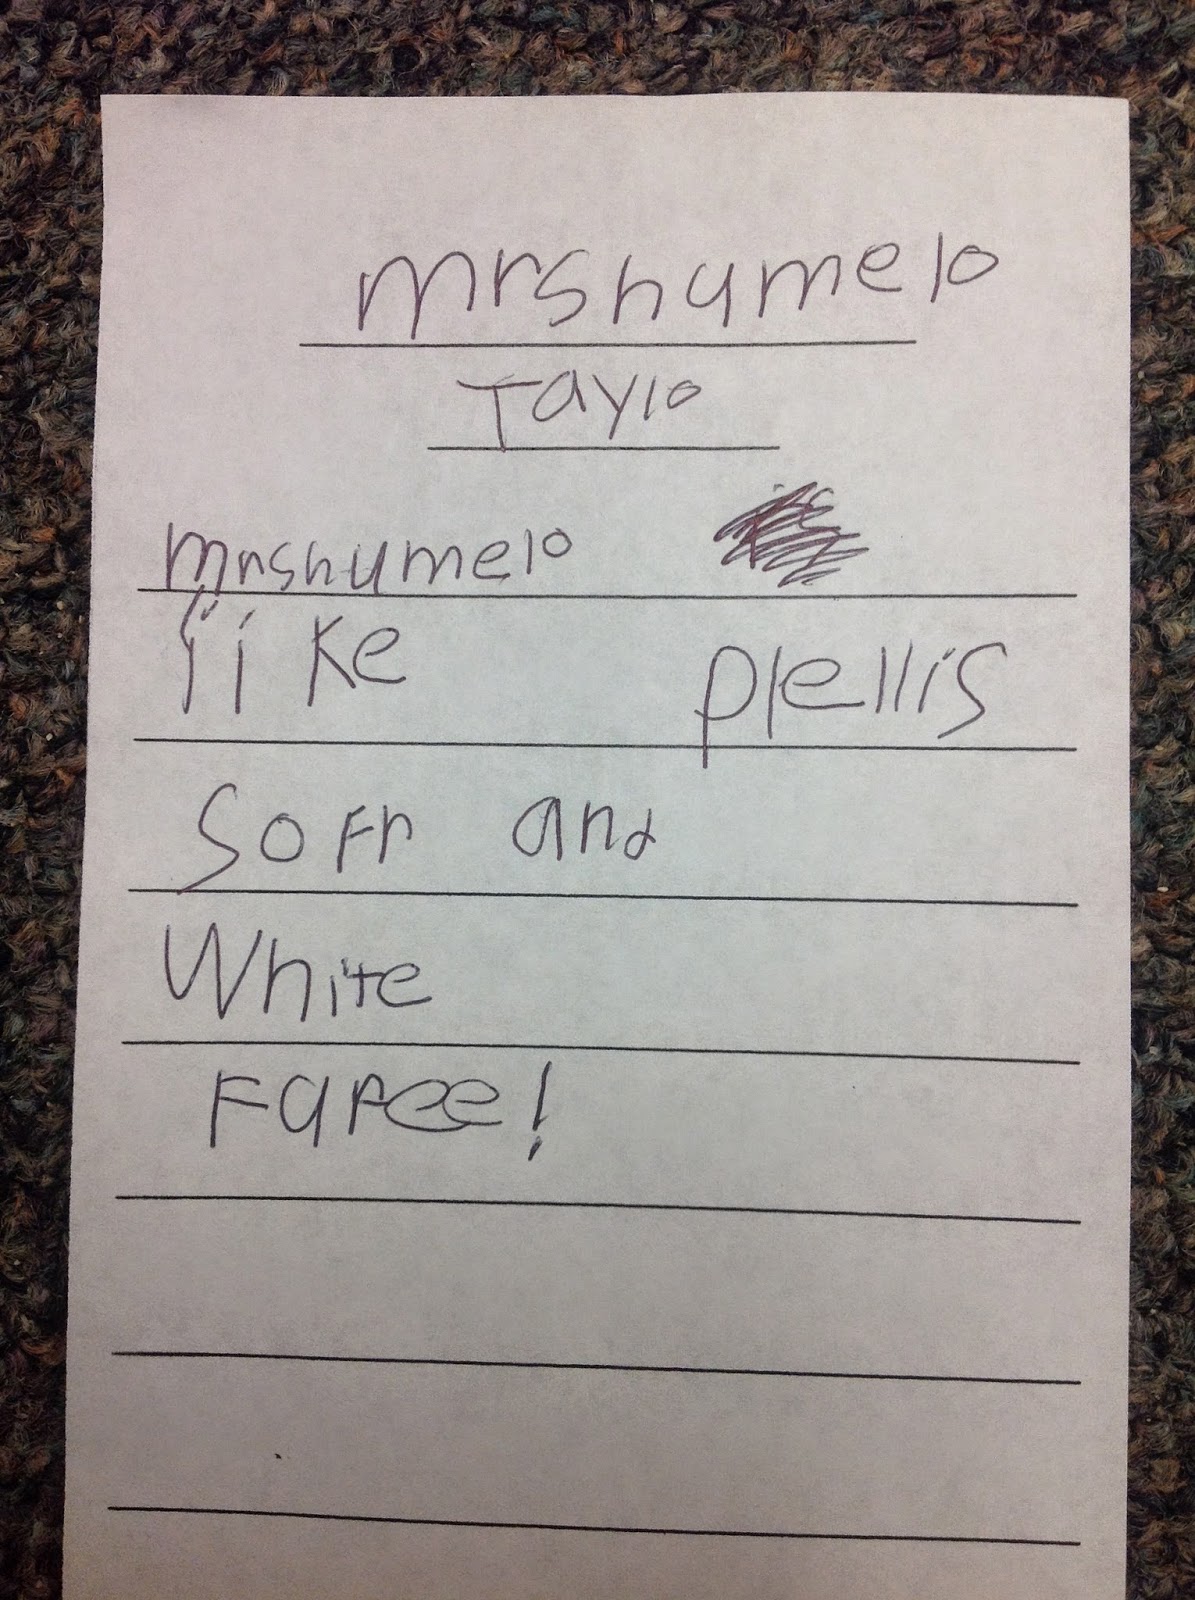 mrshumelo
Taylo
mrshumelo
like plellis
Soft and
White
Furee!